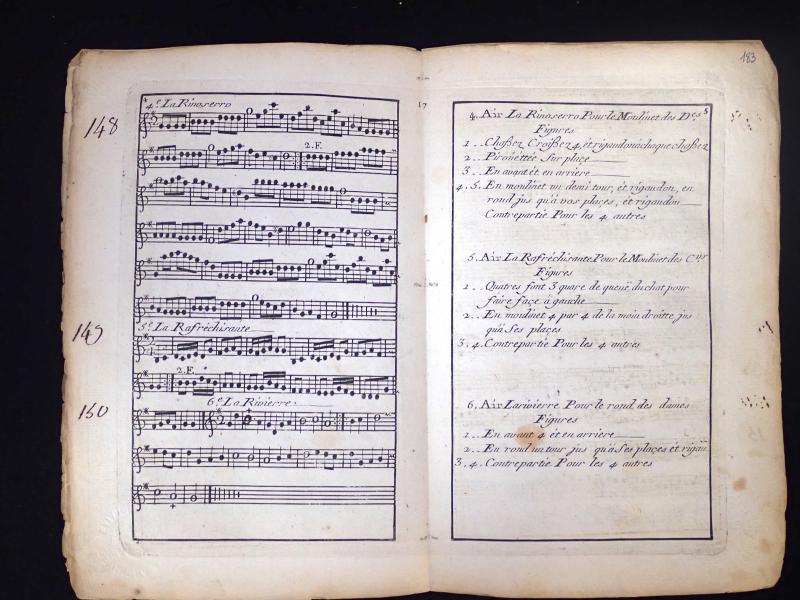 148
4.e La Rinoserro
2.F.
149
5.e La Rafréchisante
2.F.
150
6.e La Rivierre
17
183
5
4. Air La Rinoserro Pour le Moulinet des D.es
Figures
1 .. Chaßez Croißez 4, et rigaudon à chaque chaßez
2 .. Pirouettée Sur plaçe
3 .. En avant et en arriere
4. 5. En moulinet un demi tour, et rigaudon, en
rond jus qu'à vos places, et rigaudon
Contrepartie Pour les 4 autres
5. Air La Rafréchisante Pour le Moulinet des C.ers
Figures
1 .. Quatres font 3 quare de queue du chat pour
faire façe à gauche
2 .. En moulinet 4 par 4 de la main droitte jus
qu'à Ses plaçes
3. 4. Contrepartie Pour les 4 autres
6. Air Larivierre Pour le rond des dames
Figures
1 .. En avant 4 et en arriere
2 .. En rond un tour jus qu'à Ses plaçes et rigau.
3. 4. Contrepartie Pour les 4 autres